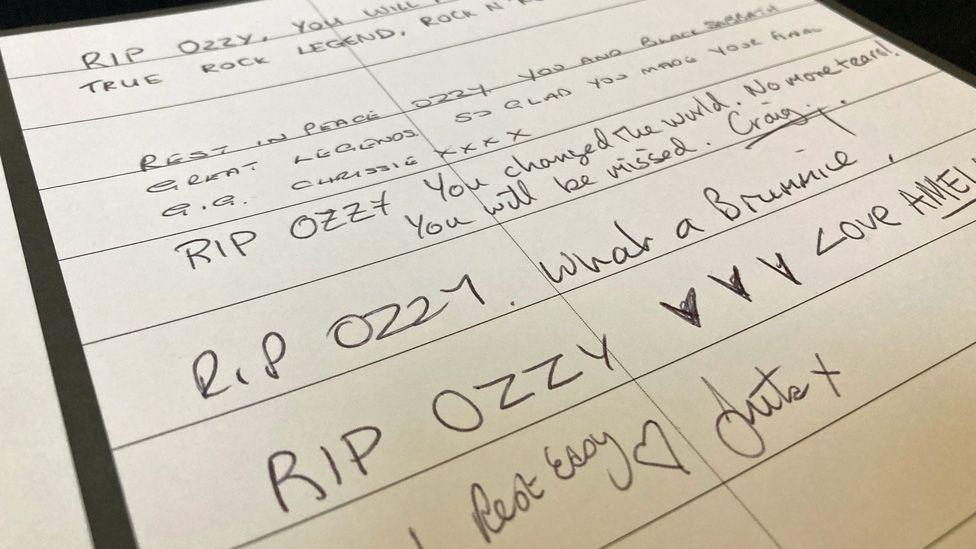 RIP OZZY, YOU WILL
TRUE ROCK LEGEND, ROCK N
REST IN PEACE OZZY YOU AND BLACK SABBATH
GREAT LEGENDS SO GLAD YOU MADE YOUR FINAL
G.G. CHRISSIE XXXX
RIP OZZY You changed the world. No more tears!
You will be missed. Craig.
RIP OZZY. What a Brummie.
RIP OZZY LOVE AMEL
Rest Easy